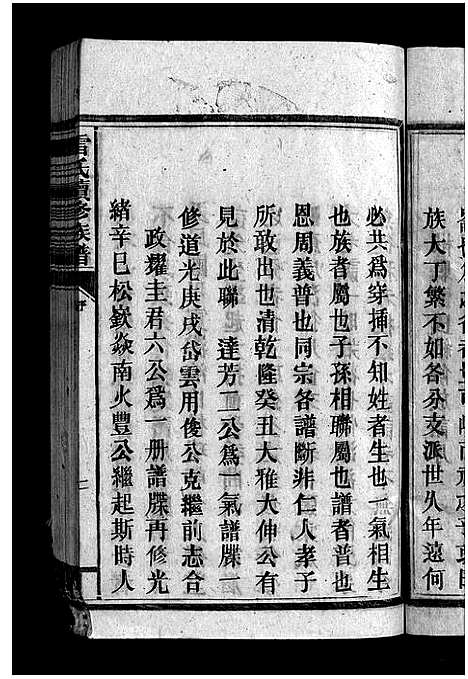 族大丁繁不如各分支派世久年遠何
必共爲穿揷不知姓者生也一氣相生
也族者屬也子孫相聯屬也譜者普也
恩周義普也同宗各譜斷非仁人孝子
所敢出也清乾隆癸丑大雅大伸公有
見於此聯 達芳二公爲一氣譜牒一
修道光庚戌岱雲用俊公克繼前志合
政耀主君六公爲一册譜牒再修光
緒辛巳松嶔焱南火豐公繼起斯時人
雷氏續修族譜
序